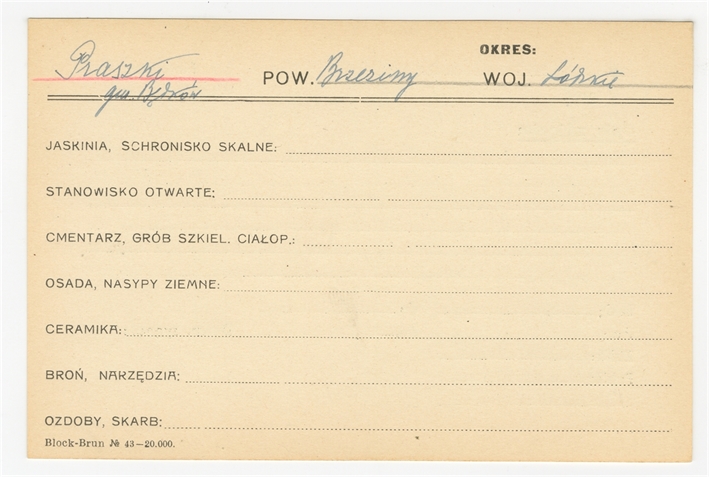 OKRES:
Praszki POW. Brzeziny WOJ. Łódzkie
gm. Będków
JASKINIA, SCHRONISKO SKALNE:
STANOWISKO OTWARTE:
CMENTARZ, GRÓB SZKIEL. CIAŁOP.:
OSADA, NASYPY ZIEMNE:
CERAMIKA:
BROŃ, NARZĘDZIA:
OZDOBY, SKARB:
Block-Brun № 43—20.000.